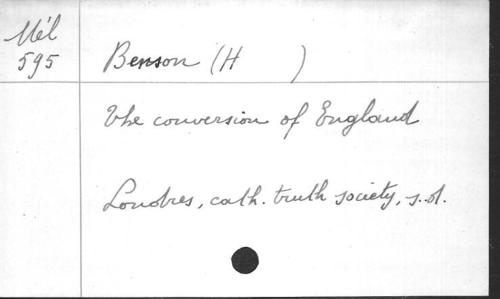 Mél
595
Benson (H )
The conversion of England
Londres, cath. truth society, s.d.